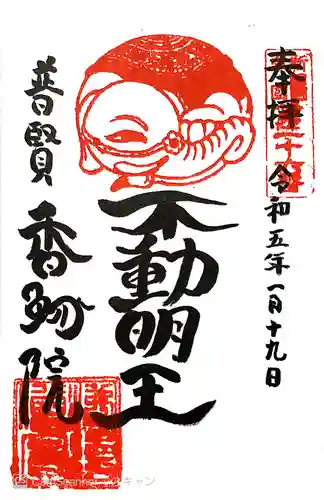 奉拝
令和五年一月十九日
不動明王
普賢
香剱院
CamScanner でスキャン